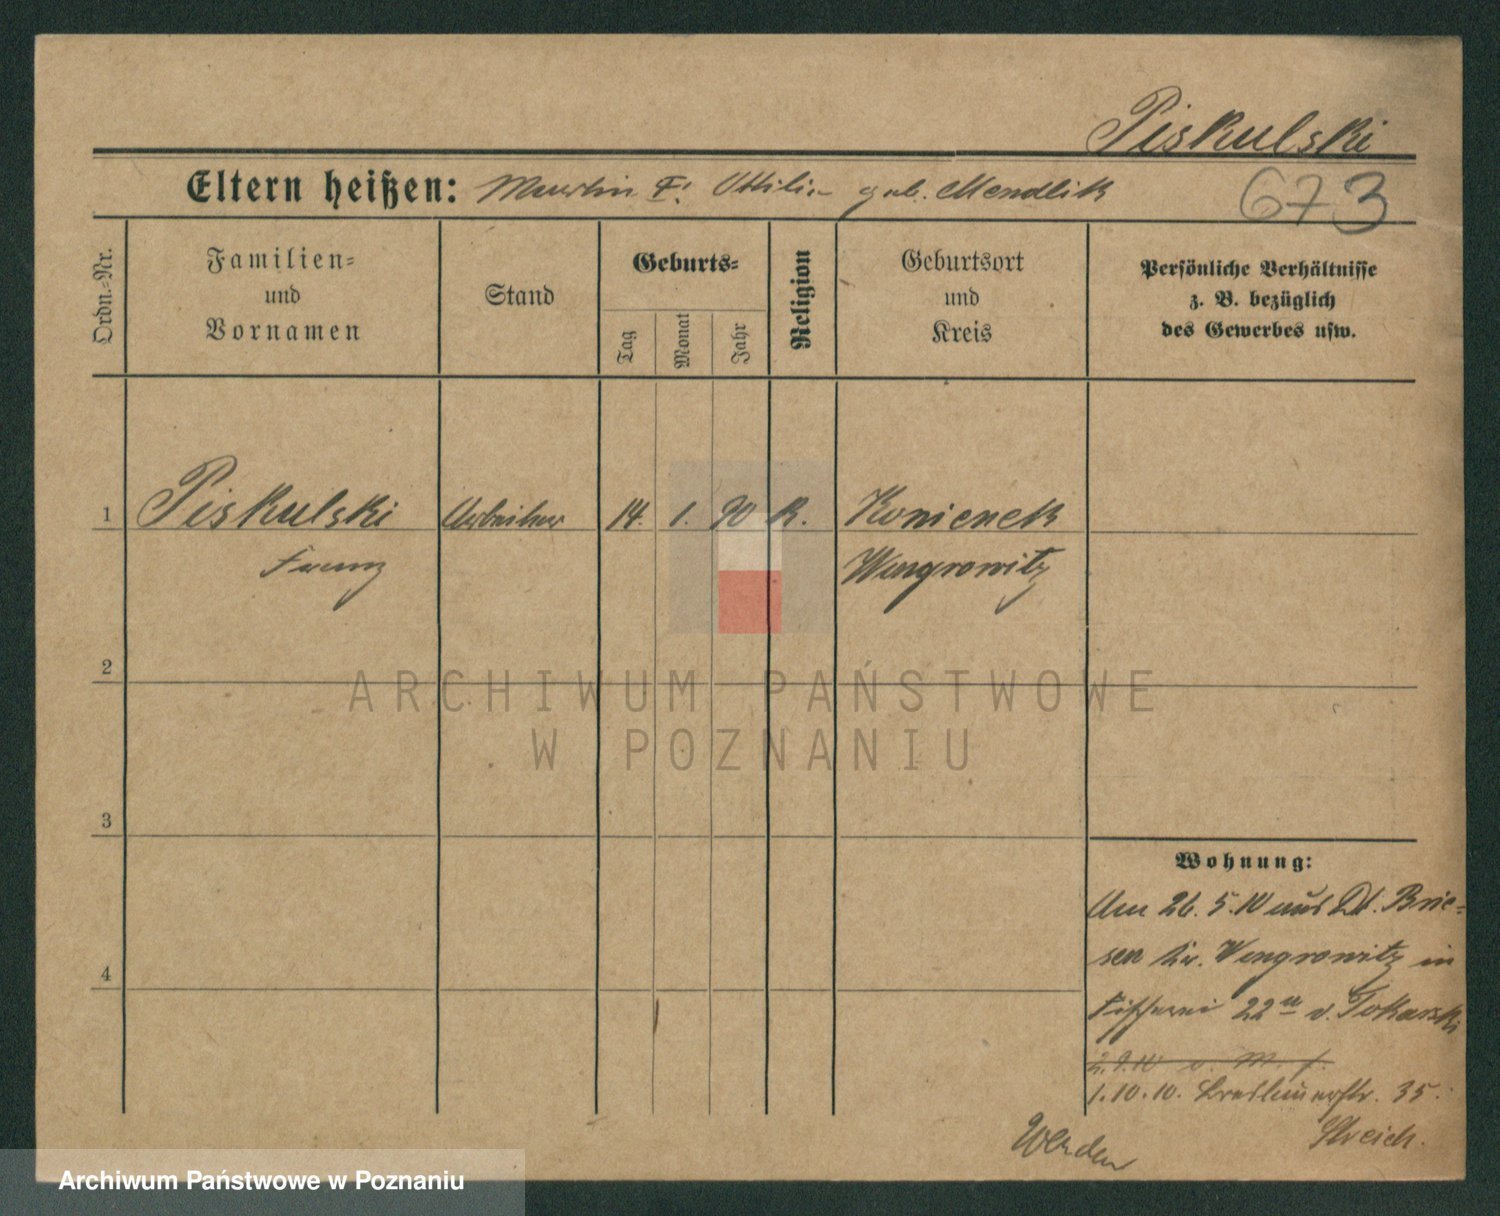 Piskulski
Eltern heißen: Martin F. Ottilie geb. Mendlik
673
Ordn.-Nr.
Familien-
und
Vornamen
Stand
Geburts-
Tag
Monat
Jahr
Religion
Geburtsort
und
Kreis
Persönliche Verhältnisse
z. B. bezüglich
des Gewerbes usw.
1 Piskulski Arbeiter 14. 1. 90 K. Konienek
Franz Wongrowitz
2
ARCHIWUM PAŃSTWOWE
W POZNANIU
3
Wohnung:
Am 26.5.10 aus Dt. Brie-
sen Kr. Wongrowitz in
4
Fischerei 22 b. Tokarski
2.9.10 v. M.
1.10.10. Breslauerstr. 35.
Streich.
Archiwum Państwowe w Poznaniu